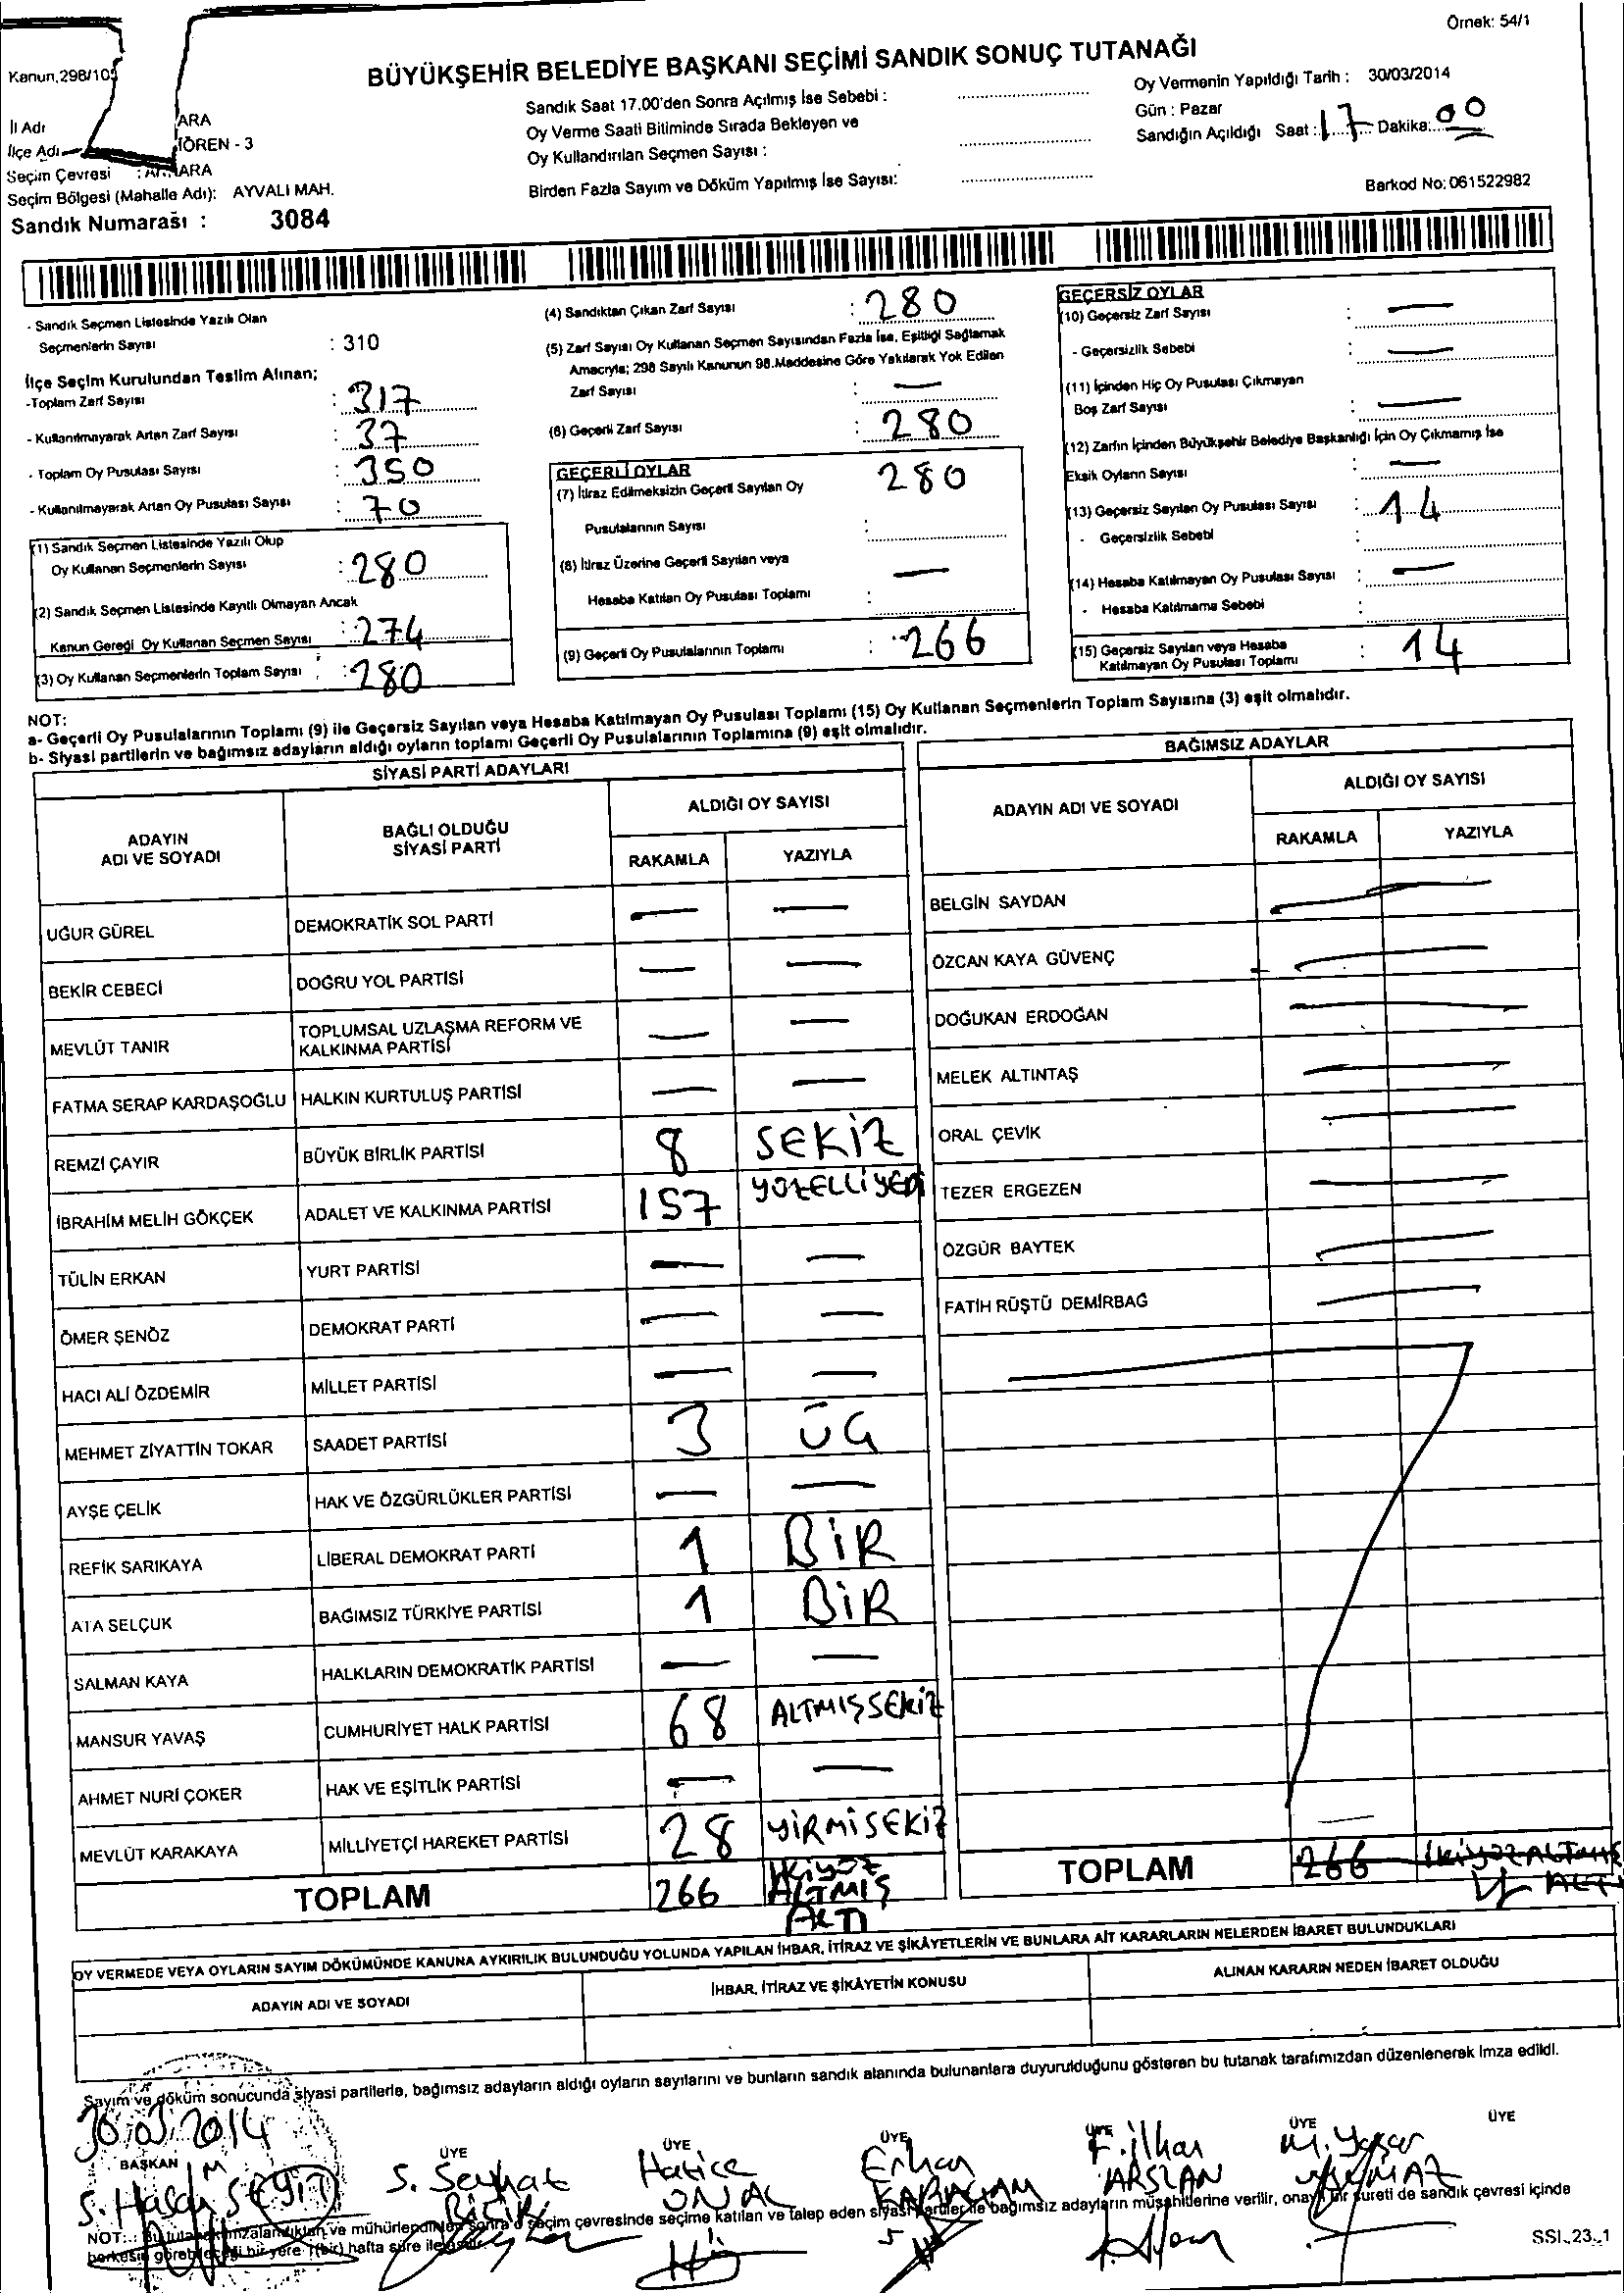 Örnek: 54/1
Kanun,298/105
BÜYÜKŞEHİR BELEDİYE BAŞKANI SEÇİMİ SANDIK SONUÇ TUTANAĞI
Sandık Saat 17.00'den Sonra Açılmış İse Sebebi :
Oy Verme Saati Bitiminde Sırada Bekleyen ve
Oy Kullandırılan Seçmen Sayısı :
Birden Fazla Sayım ve Döküm Yapılmış İse Sayısı:
Oy Vermenin Yapıldığı Tarih : 30/03/2014
Gün : Pazar
Sandığın Açıldığı Saat : 17 Dakika: 00
Barkod No: 061522982
İl Adı ARA
İlçe Adı ÖREN - 3
Seçim Çevresi : ARA
Seçim Bölgesi (Mahalle Adı): AYVALI MAH.
Sandık Numarası : 3084
- Sandık Seçmen Listesinde Yazılı Olan
Seçmenlerin Sayısı : 310
İlçe Seçim Kurulundan Teslim Alınan;
-Toplam Zarf Sayısı : 317
- Kullanılmayarak Artan Zarf Sayısı : 37
- Toplam Oy Pusulası Sayısı : 350
- Kullanılmayarak Artan Oy Pusulası Sayısı : 70
(1) Sandık Seçmen Listesinde Yazılı Olup
Oy Kullanan Seçmenlerin Sayısı : 280
(2) Sandık Seçmen Listesinde Kayıtlı Olmayan Ancak
Kanun Gereği Oy Kullanan Seçmen Sayısı : 274
(3) Oy Kullanan Seçmenlerin Toplam Sayısı : 280
(4) Sandıktan Çıkan Zarf Sayısı : 280
(5) Zarf Sayısı Oy Kullanan Seçmen Sayısından Fazla İse, Eşitliği Sağlamak
Amacıyla; 298 Sayılı Kanunun 98.Maddesine Göre Yakılarak Yok Edilen
Zarf Sayısı : —
(6) Geçerli Zarf Sayısı : 280
GEÇERLİ OYLAR
(7) İtiraz Edilmeksizin Geçerli Sayılan Oy 280
Pusulalarının Sayısı :
(8) İtiraz Üzerine Geçerli Sayılan veya —
Hesaba Katılan Oy Pusulası Toplamı :
(9) Geçerli Oy Pusulalarının Toplamı : 266
GEÇERSİZ OYLAR
(10) Geçersiz Zarf Sayısı : —
- Geçersizlik Sebebi : —
(11) İçinden Hiç Oy Pusulası Çıkmayan
Boş Zarf Sayısı : —
(12) Zarfın İçinden Büyükşehir Belediye Başkanlığı İçin Oy Çıkmamış İse
Eksik Oyların Sayısı : —
(13) Geçersiz Sayılan Oy Pusulası Sayısı : 14
- Geçersizlik Sebebi
(14) Hesaba Katılmayan Oy Pusulası Sayısı : —
- Hesaba Katılmama Sebebi :
(15) Geçersiz Sayılan veya Hesaba
Katılmayan Oy Pusulası Toplamı : 14
NOT:
a- Geçerli Oy Pusulalarının Toplamı (9) ile Geçersiz Sayılan veya Hesaba Katılmayan Oy Pusulası Toplamı (15) Oy Kullanan Seçmenlerin Toplam Sayısına (3) eşit olmalıdır.
b- Siyasi partilerin ve bağımsız adayların aldığı oyların toplamı Geçerli Oy Pusulalarının Toplamına (9) eşit olmalıdır.
SİYASİ PARTİ ADAYLARI
ADAYIN
ADI VE SOYADI
BAĞLI OLDUĞU
SİYASİ PARTİ
ALDIĞI OY SAYISI
RAKAMLA YAZIYLA
UĞUR GÜREL DEMOKRATİK SOL PARTİ — —
BEKİR CEBECİ DOĞRU YOL PARTİSİ — —
MEVLÜT TANIR TOPLUMSAL UZLAŞMA REFORM VE
KALKINMA PARTİSİ — —
FATMA SERAP KARDAŞOĞLU HALKIN KURTULUŞ PARTİSİ — —
REMZİ ÇAYIR BÜYÜK BİRLİK PARTİSİ 8 SEKİZ
İBRAHİM MELİH GÖKÇEK ADALET VE KALKINMA PARTİSİ 157 YÜZELLİYEDİ
TÜLİN ERKAN YURT PARTİSİ — —
ÖMER ŞENÖZ DEMOKRAT PARTİ — —
HACI ALİ ÖZDEMİR MİLLET PARTİSİ — —
MEHMET ZİYATTİN TOKAR SAADET PARTİSİ 3 ÜÇ
AYŞE ÇELİK HAK VE ÖZGÜRLÜKLER PARTİSİ — —
REFİK SARIKAYA LİBERAL DEMOKRAT PARTİ 1 BİR
ATA SELÇUK BAĞIMSIZ TÜRKİYE PARTİSİ 1 BİR
SALMAN KAYA HALKLARIN DEMOKRATİK PARTİSİ — —
MANSUR YAVAŞ CUMHURİYET HALK PARTİSİ 68 ALTMIŞSEKİZ
AHMET NURİ ÇOKER HAK VE EŞİTLİK PARTİSİ — —
MEVLÜT KARAKAYA MİLLİYETÇİ HAREKET PARTİSİ 28 YİRMİSEKİZ
TOPLAM 266 İKİYÜZ
ALTMIŞ
ALTI
BAĞIMSIZ ADAYLAR
ADAYIN ADI VE SOYADI
ALDIĞI OY SAYISI
RAKAMLA YAZIYLA
BELGİN SAYDAN
ÖZCAN KAYA GÜVENÇ
DOĞUKAN ERDOĞAN
MELEK ALTINTAŞ
ORAL ÇEVİK
TEZER ERGEZEN
ÖZGÜR BAYTEK
FATİH RÜŞTÜ DEMİRBAĞ
TOPLAM 266 İKİYÜZALTMIŞ
ALTI
OY VERMEDE VEYA OYLARIN SAYIM DÖKÜMÜNDE KANUNA AYKIRILIK BULUNDUĞU YOLUNDA YAPILAN İHBAR, İTİRAZ VE ŞİKÂYETLERİN VE BUNLARA AİT KARARLARIN NELERDEN İBARET BULUNDUKLARI
ADAYIN ADI VE SOYADI İHBAR, İTİRAZ VE ŞİKÂYETİN KONUSU ALINAN KARARIN NEDEN İBARET OLDUĞU
Sayım ve döküm sonucunda siyasi partilerle, bağımsız adayların aldığı oyların sayılarını ve bunların sandık alanında bulunanlara duyurulduğunu gösteren bu tutanak tarafımızdan düzenlenerek imza edildi.
30.03.2014
BAŞKAN ÜYE ÜYE ÜYE ÜYE ÜYE ÜYE
S. Hasan S. Serhat Hatice Erhan F. ilhan M. Yaşar
ÖNAL KARAÇAM ARSLAN
NOT: Bu tutanak imzalandıktan ve mühürlendikten sonra o seçim çevresinde seçime katılan ve talep eden siyasi partiler ile bağımsız adayların müşahitlerine verilir, onaylı bir sureti de sandık çevresi içinde
herkesin görebileceği bir yere 1(bir) hafta süre ile asılır.
SSI_23_1